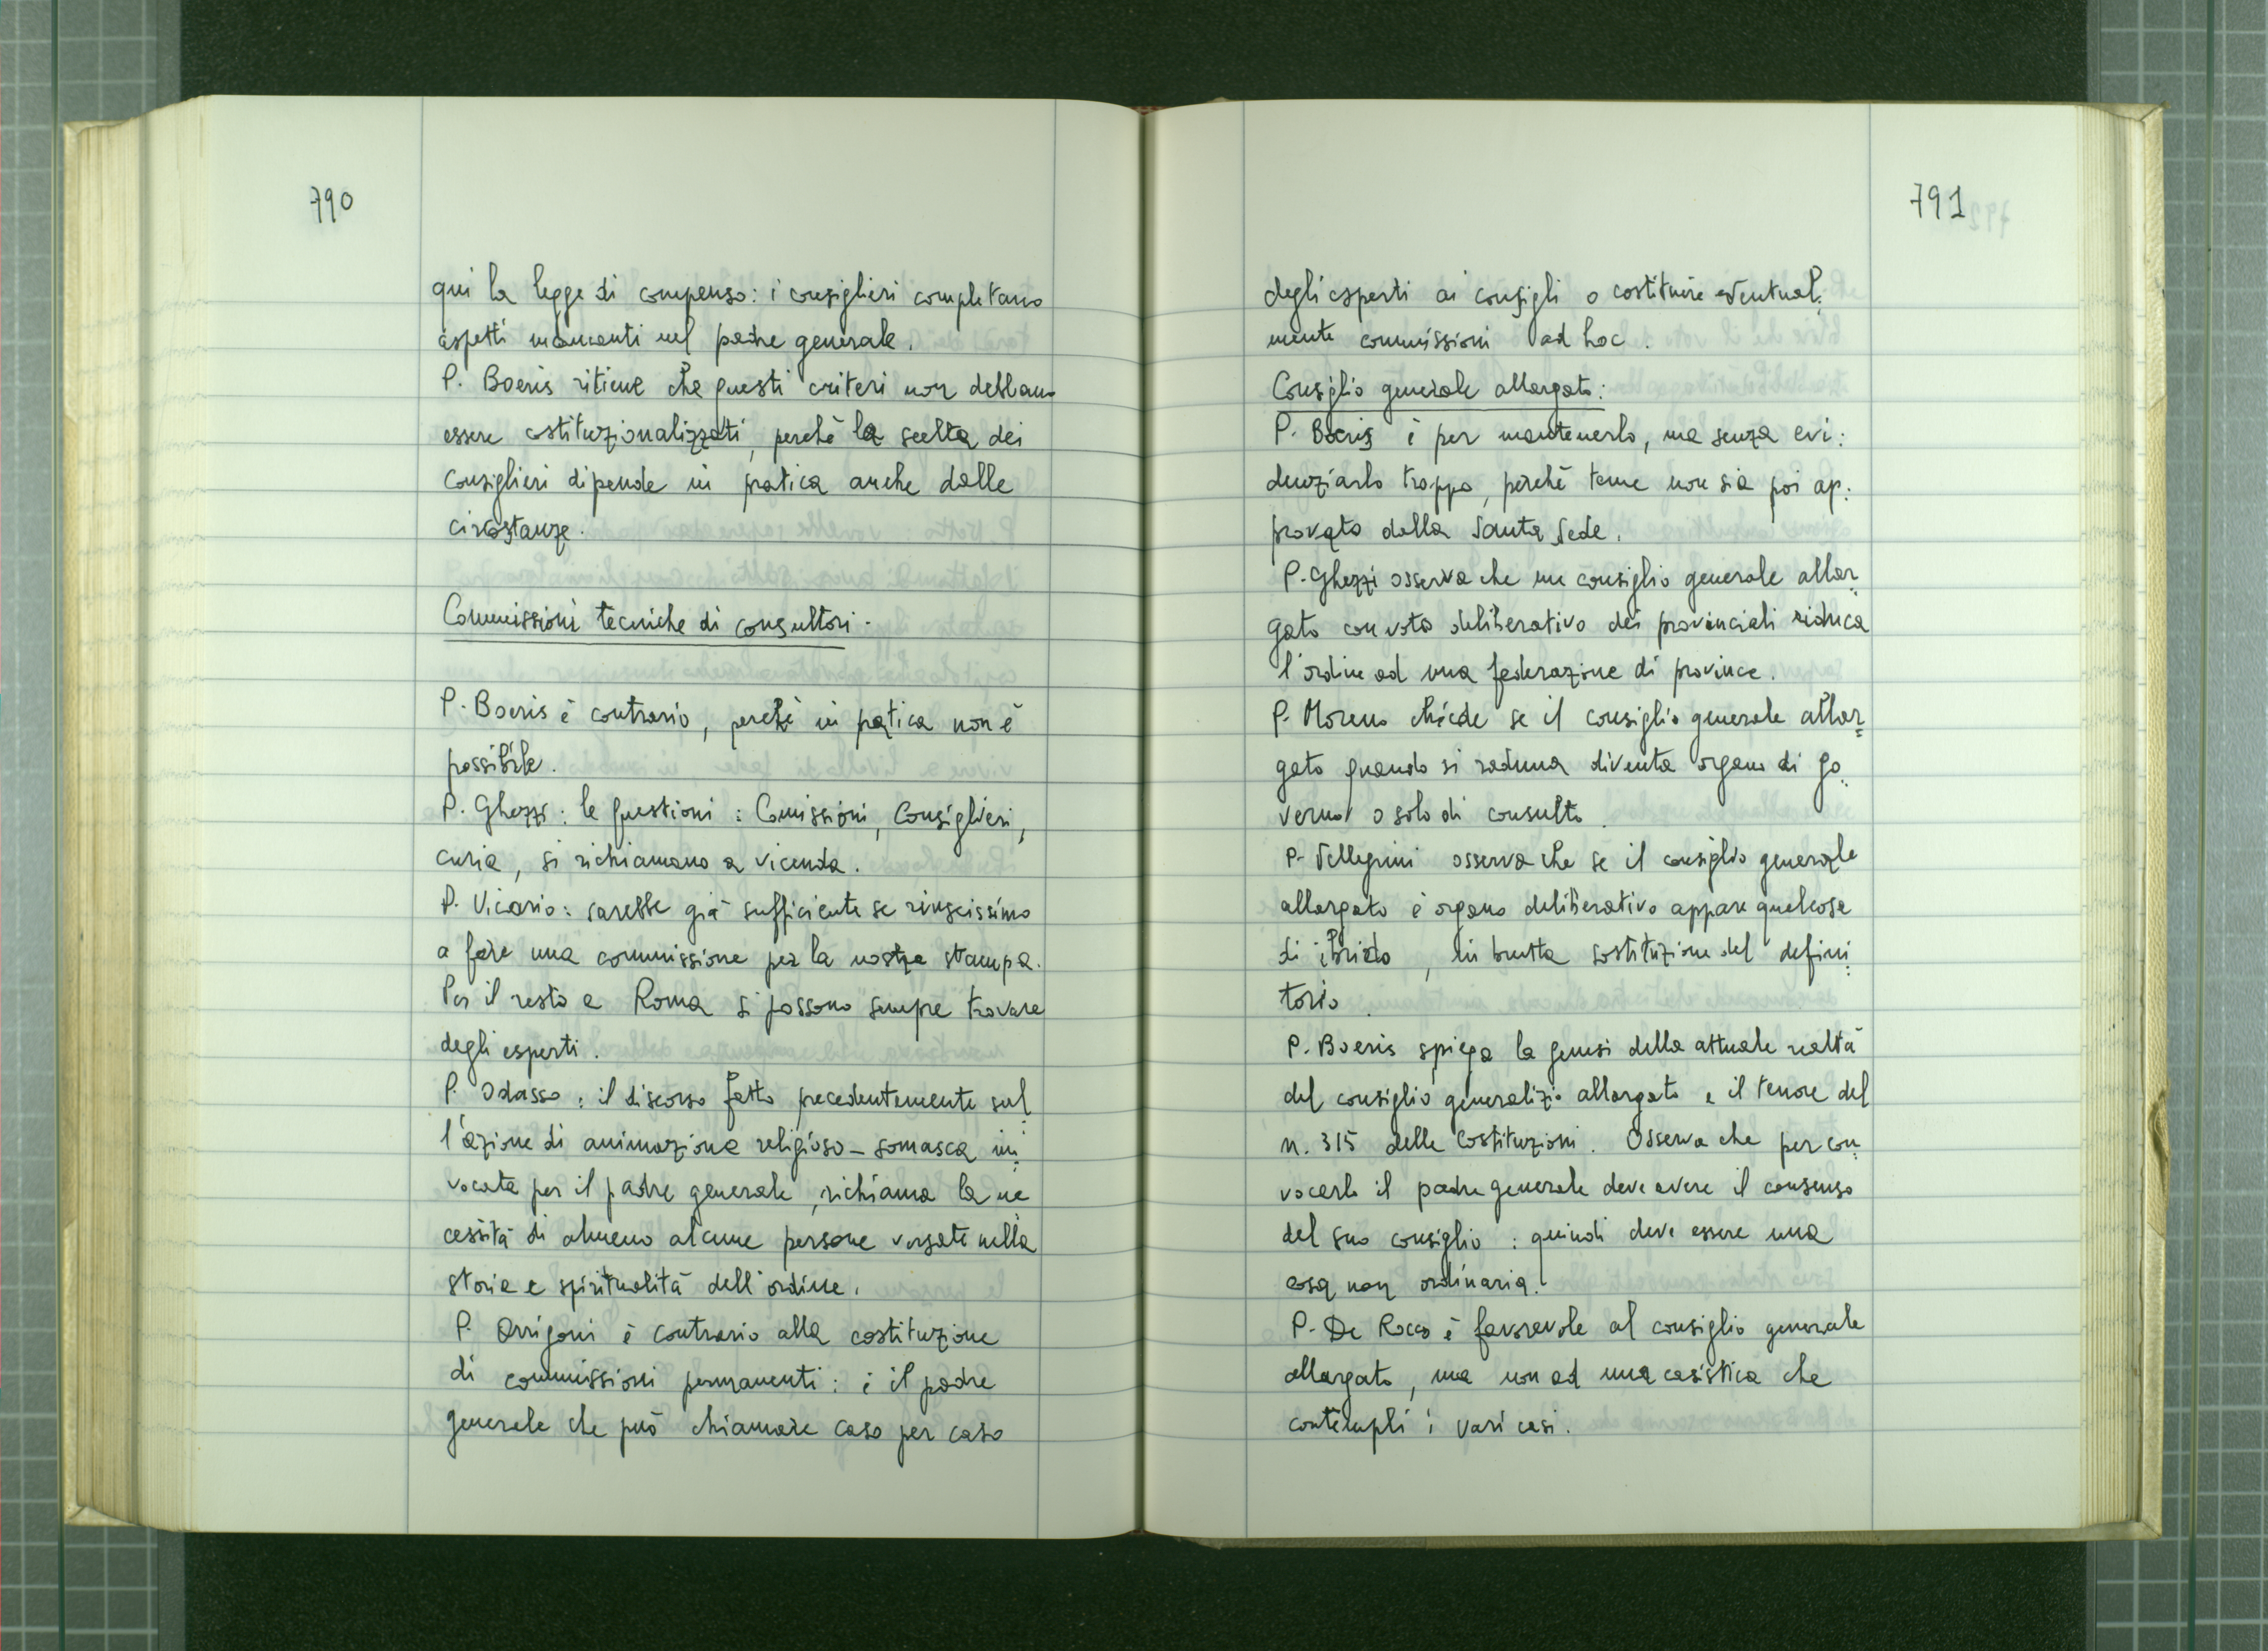 790
qui la legge di compenso: i consiglieri completano
aspetti mancanti nel padre generale.
P. Boeris ritiene che questi criteri non debbano
essere costituzionalizzati, perchè la scelta dei
consiglieri dipende in pratica anche dalle
circostanze.
Commissioni tecniche di consultori.
P. Boeris è contrario, perchè in pratica non è
possibile.
P. Ghezzi: le questioni: Comissioni, Consiglieri,
curia, si richiamano a vicenda.
P. Vicario: sarebbe già sufficiente se riuscissimo
a fare una commissione per la nostra stampa.
Per il resto a Roma si possono sempre trovare
degli esperti.
P. Odasso: il discorso fatto precedentemente sul
l'azione di animazione religioso-somasca in
vocata per il padre generale, richiama la ne
cessità di almeno alcune persone versate nella
storia e spiritualità dell'ordine.
P. Arrigoni è contrario alla costituzione
di commissioni permanenti: è il padre
generale che può chiamare caso per caso
791
degli esperti ai consigli o costituire eventual:
mente commissioni ad hoc.
Consiglio generale allargato:
P. Boeris è per mantenerlo, ma senza evi:
denziarlo troppo, perchè teme non sia poi ap:
provato dalla Santa Sede.
P. Ghezzi osserva che un consiglio generale allar
gato con voto deliberativo dei provinciali riduca
l'ordine ad una federazione di province.
P. Moreno chiede se il consiglio generale allar
gato quando si raduna diventa organo di go
verno o solo di consulta.
P. Pellegrini osserva che se il consiglio generale
allargato è organo deliberativo appare qualcosa
di ibrido, in brutta sostituzione del defini
torio.
P. Boeris spiega la genesi della attuale realtà
del consiglio generalizio allargato e il tenore del
n. 315 delle Costituzioni. Osserva che per con
vocarlo il padre generale deve avere il consenso
del suo consiglio: quindi deve essere una
cosa non ordinaria.
P. De Rocco è favorevole al consiglio generale
allargato, ma non ad una casistica che
contempli i vari casi.